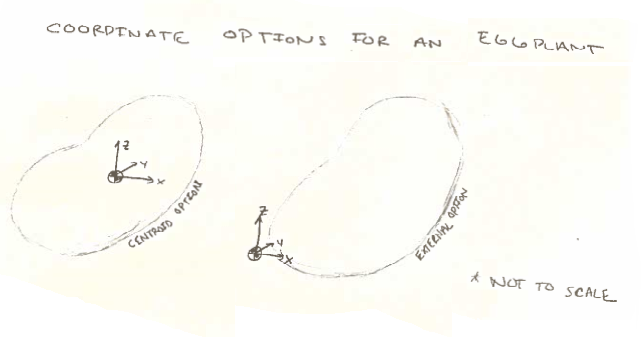 COORDINATE OPTIONS FOR AN EGGPLANT
Z
Y
X
CENTROID OPTION
Z
Y
X
EXTERNAL OPTION
* NOT TO SCALE